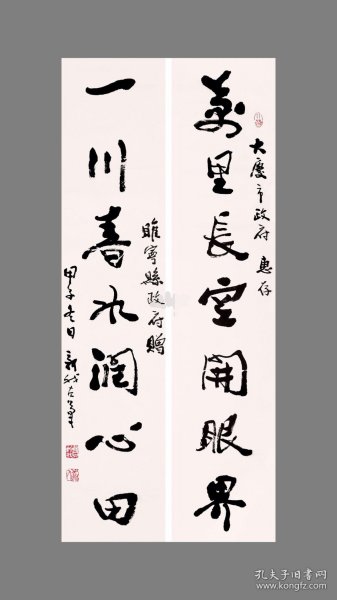 大慶市政府 惠存
萬里長空開眼界
一川春水潤心田
睢寧縣政府贈
甲子冬日 新我左筆
孔夫子旧书网